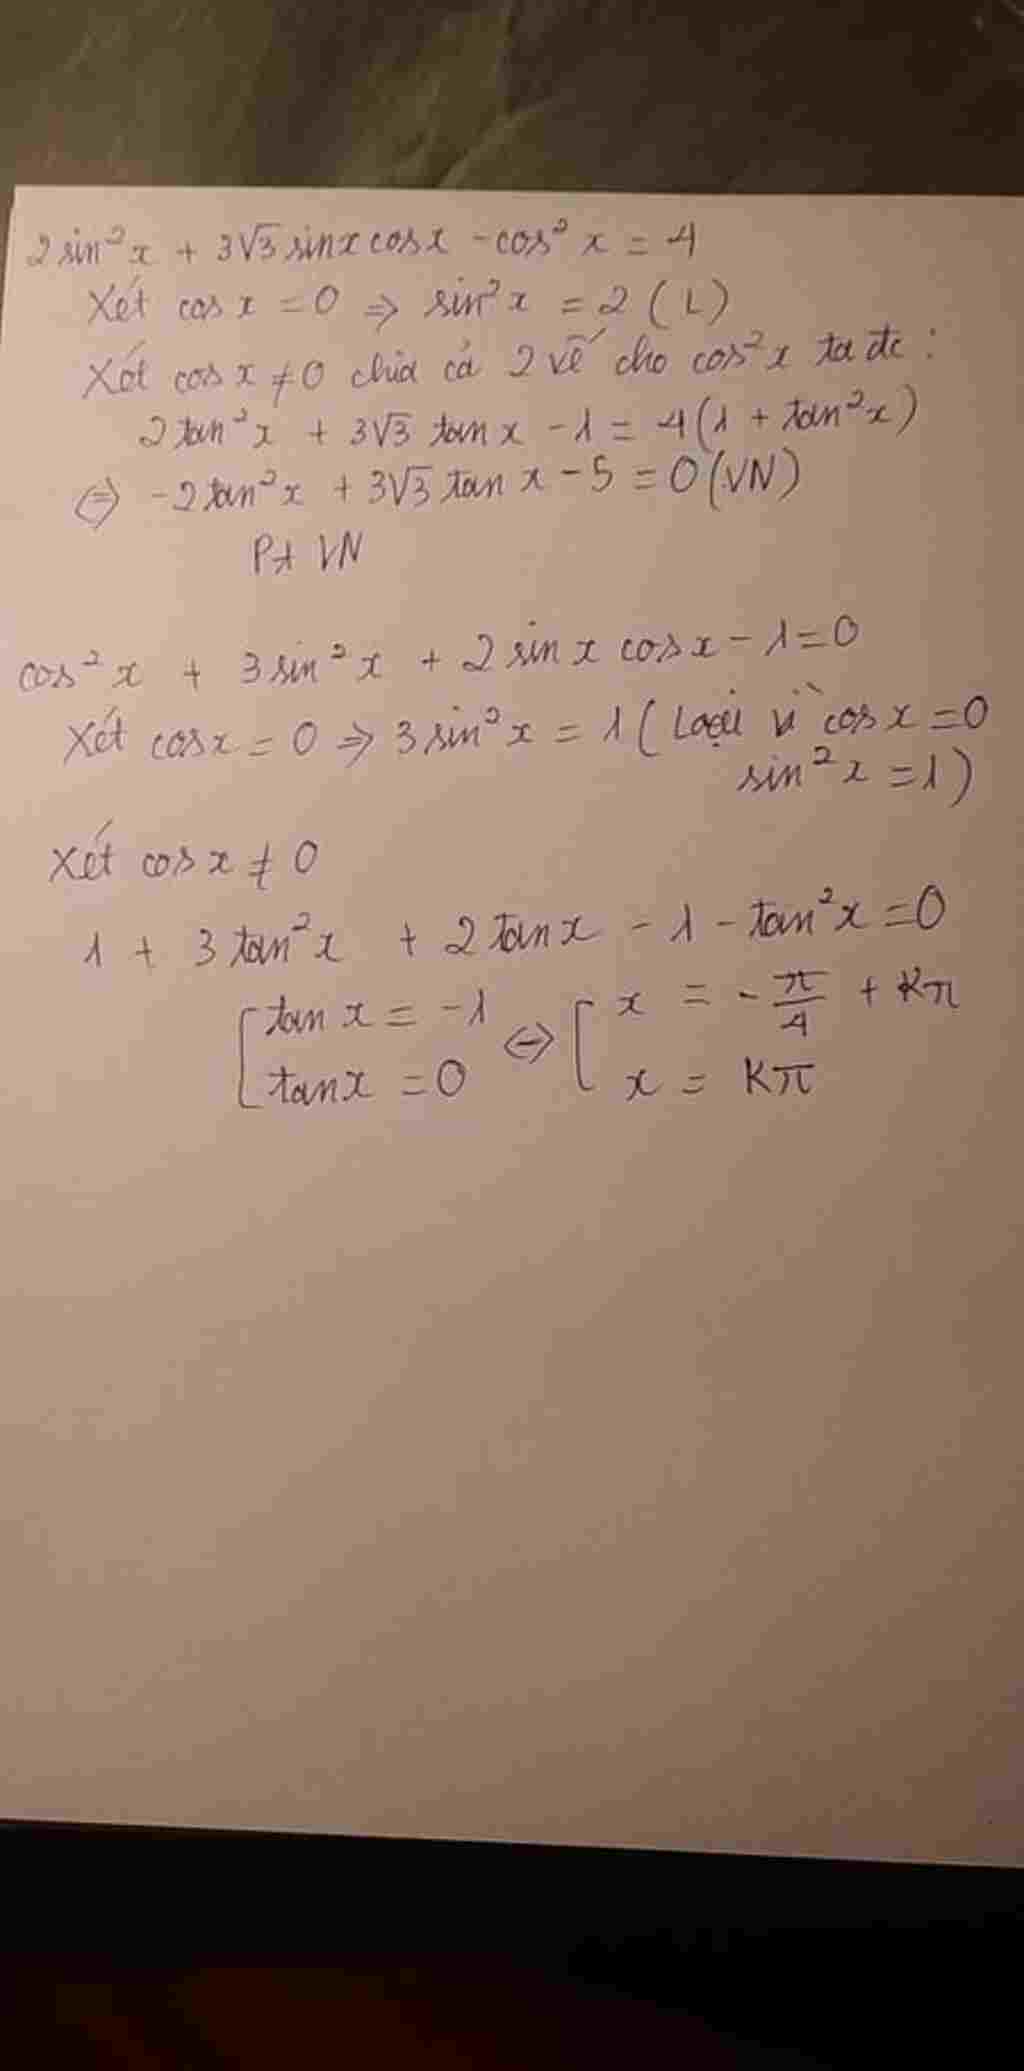 2sin²x + 3√3 sinx cosx - cos²x = 4
Xét cosx = 0 ⇒ sin²x = 2 (L)
Xét cosx ≠ 0 chia cả 2 vế cho cos²x ta đc :
2tan²x + 3√3 tanx - 1 = 4(1 + tan²x)
⇔ -2tan²x + 3√3 tanx - 5 = 0 (VN)
Pt VN
cos²x + 3sin²x + 2sinx cosx - 1 = 0
Xét cosx = 0 ⇒ 3sin²x = 1 (Loại vì cosx = 0
sin²x = 1)
Xét cosx ≠ 0
1 + 3tan²x + 2tanx - 1 - tan²x = 0
[ tanx = -1 ⇔ [ x = -π/4 + kπ
tanx = 0 x = kπ